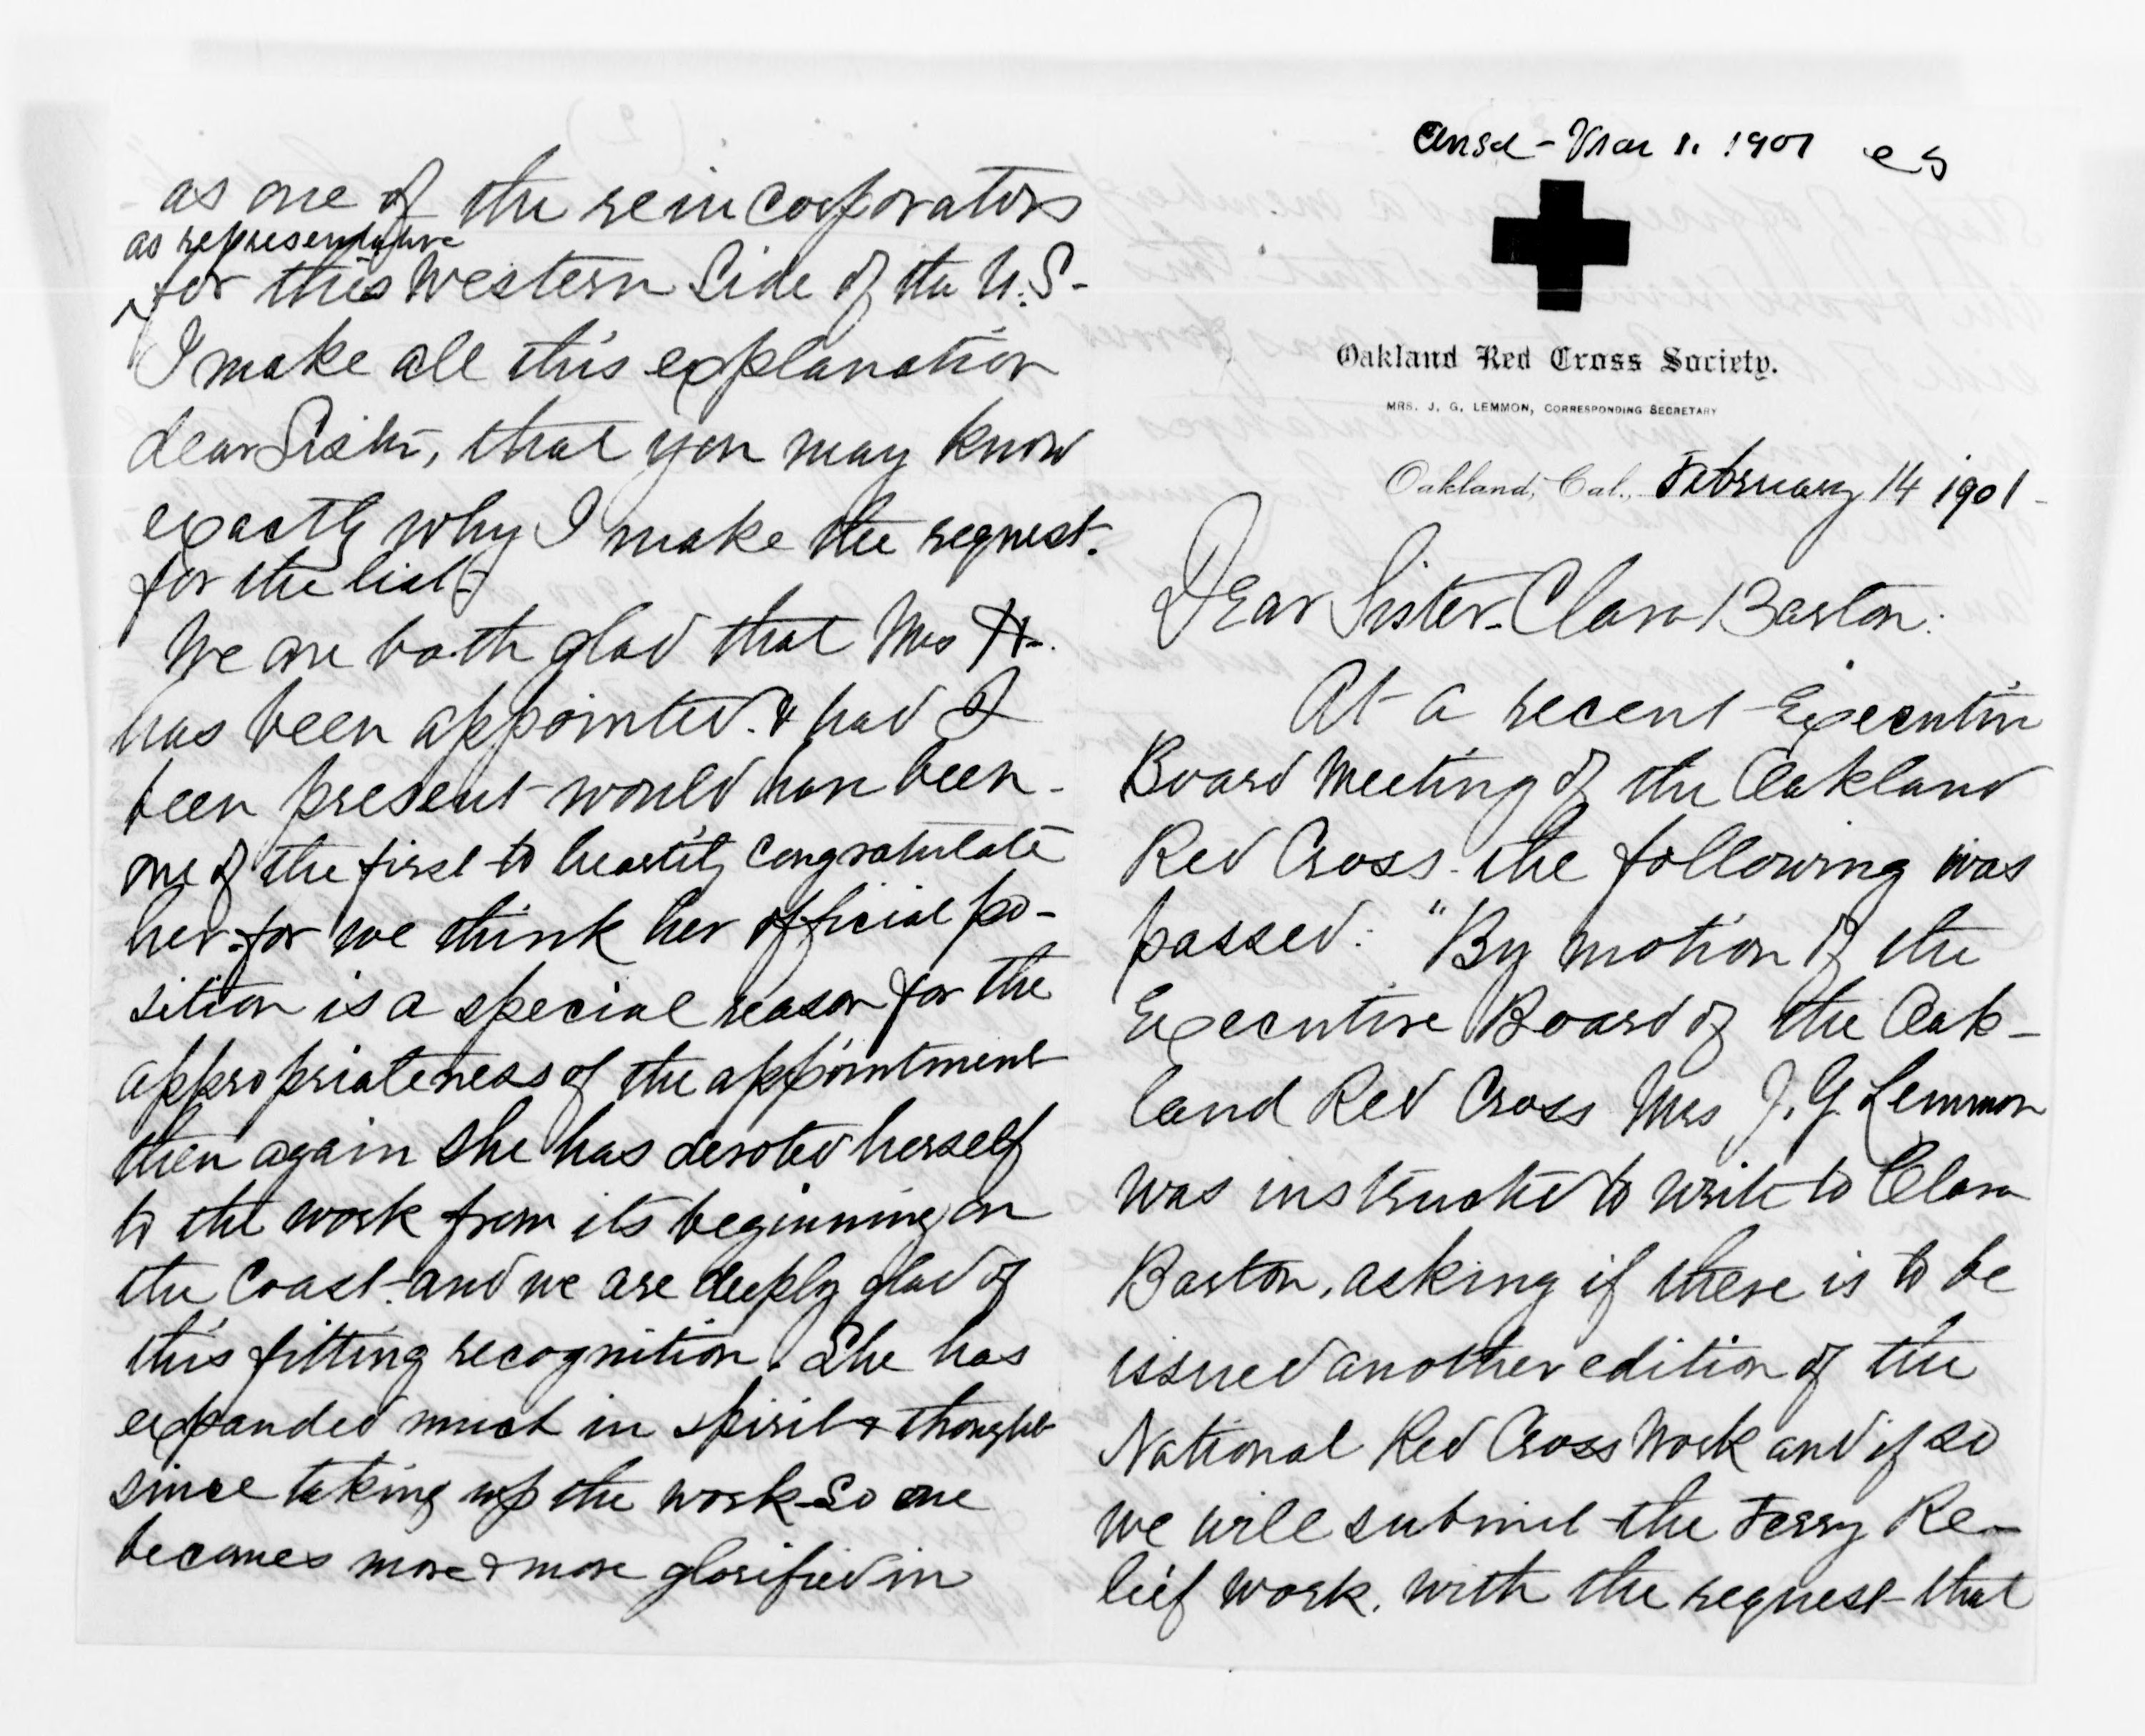 as one of the reincorporators
as representative
for this Western Side of the U.S-
I make all this explanation
dear Sister, that you may know
exactly why I make the request.
for the list-
We are both glad that Mrs H-.
has been appointed. & had I
been present would have been
one of the first to heartily congratulate
her-for we think her official po-
sition is a special reason for the
appropriateness of the appointment
then again she has devoted herself
to the work from its beginning on
the Coast-and we are deeply glad of
this fitting recognition. She has
expanded much in spirit & thought
since taking up the work-So one
becomes more & more glorified in
Ansd - Mar 1. 1901
Oakland Red Cross Society.
MRS. J. G. LEMMON, CORRESPONDING SECRETARY
Oakland, Cal., February 14 1901-
Dear Sister-Clara Barton:
At a recent Executive
Board Meeting of the Oakland
Red Cross-the following was
passed: "By motion of the
Executive Board of the Oak-
land Red Cross Mrs J. G. Lemmon
was instructed to write to Clara
Barton, asking if there is to be
issued another edition of the
National Red Cross Work and if so
we will submit the Ferry Re-
lief work. with the request-that